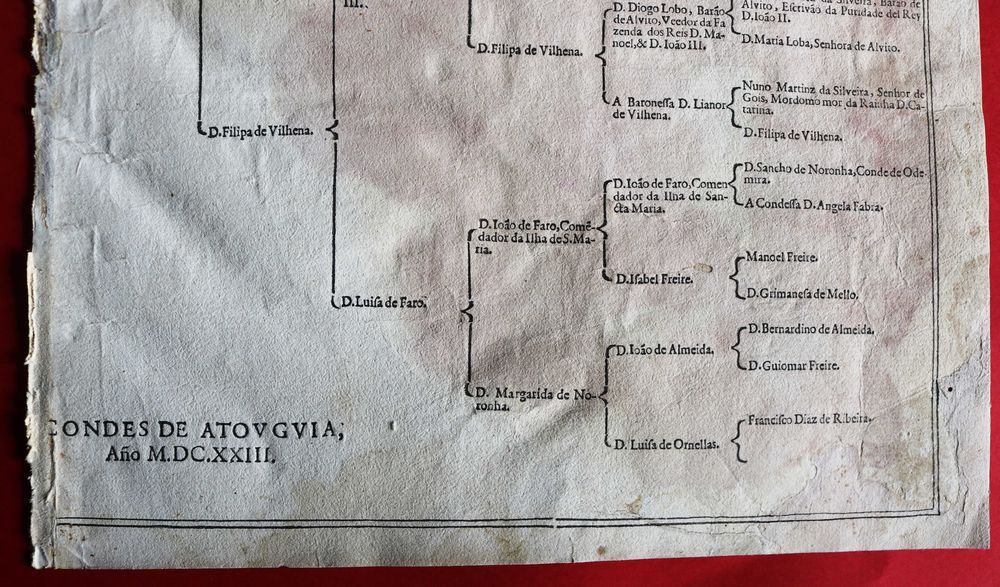 III.
D. Filipa de Vilhena.
D. Filipa de Vilhena.
D. Luiſa de Faro.
D. Ioão de Faro, Comẽ-
dador da Ilha de S. Ma-
ria.
D. Margarida de No-
ronha.
D. Diogo Lobo, Barão
de Alvito, Veedor da Fa-
zenda dos Reis D. Ma-
noel, & D. Ioão III.
A Baroneſſa D. Lianor
de Vilhena.
D. Ioão de Faro, Comen-
dador da Ilha de San-
cta Maria.
D. Iſabel Freire.
D. Ioão de Almeida.
D. Luiſa de Ornellas.
Silveira, Barão de
Alvito, Eſcrivão da Puridade del Rey
D. Ioão II.
D. Maria Loba, Senhora de Alvito.
Nuno Martinz da Silveira, Senhor de
Gois, Mordomo mor da Rainha D. Ca-
tarina.
D. Filipa de Vilhena.
D. Sancho de Noronha, Conde de Ode-
mira.
A Condeſſa D. Angela Fabra.
Manoel Freire.
D. Grimaneſa de Mello.
D. Bernardino de Almeida.
D. Guiomar Freire.
Franciſco Diaz de Ribeira.
CONDES DE ATOVGVIA;
Año M.DC.XXIII.